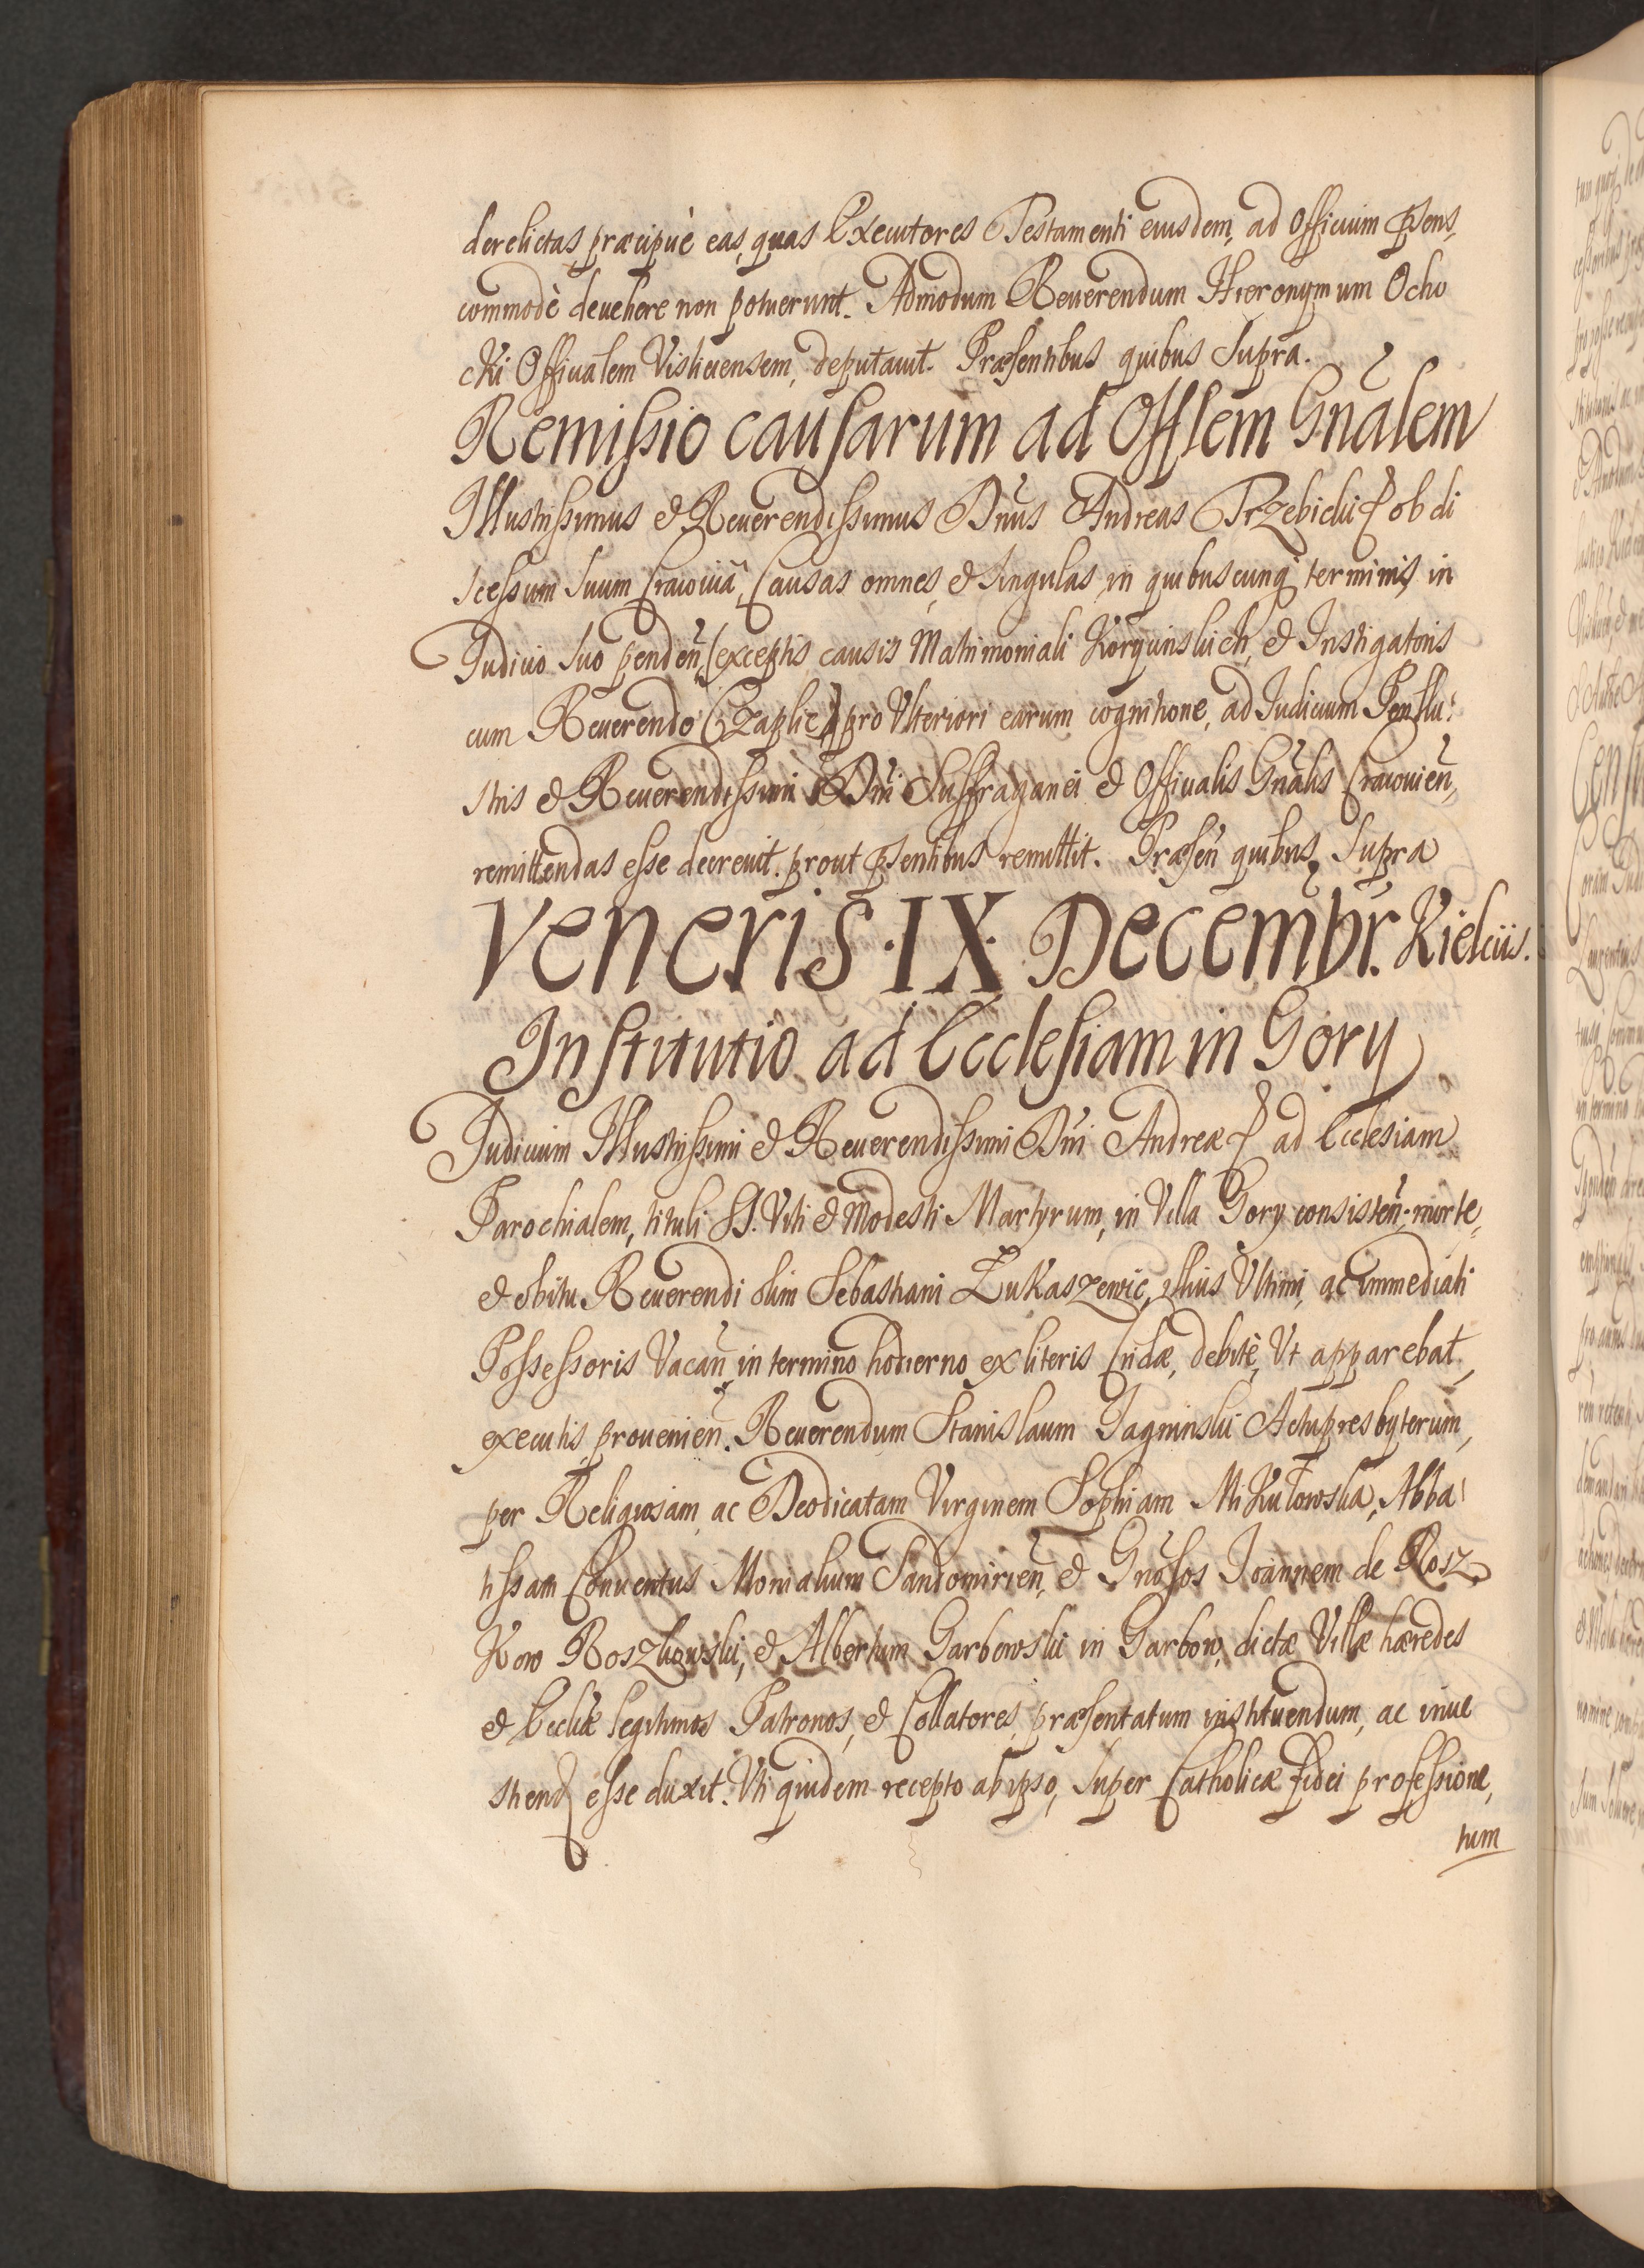 derelictas, præcipuè eas, quas Executores Testamenti eiusdem, ad Officium p̄sens,
commodè deuehere non potuerunt. Admodum Reuerendum Hieronymum Ocho
cki Officialem Visliciensem, deputauit. Præsentibus quibus supra.
Remissio causarum ad Offlem Gn̄alem
Illustrissimus & Reuerendissimus Dn̄us Andreas Trzebicki & ob di
scessum suum Cracouiâ, Causas omnes, & singulas in quibuscunq terminis, in
Iudicio suo penden̄, (exceptis causis Matrimoniali Korycinskich, & Instigatoris
cum Reuerendo Czaplic) pro Vlteriori earum cognitione, ad Iudicium Perillu:
stris & Reuerendissimi Dn̄i Suffraganei & Officialis Gn̄alis Cracouien̄,
remittendas esse decreuit. prout p̄sentibus remittit. Præsen̄ quibus supra
Veneris · IX · Decembr. Kielciis.
Institutio ad Ecclesiam in Gory
Iudicium Illustrissimi & Reuerendissimi Dn̄i Andreæ & ad Ecclesiam
Parochialem, tituli SS. Viti & Modesti Martyrum, in Villa Gory consisten̄, morte,
& obitu Reuerendi olim Sebastiani Łukaszewic, illius Vltimi, ac immediati
Possessoris Vacan̄, in termino hodierno, ex literis Cridæ, debitè, Vt apparebat,
executis, prouenien̄. Reuerendum Stanislaum Jagninski Actupresbyterum,
per Religiosam, ac Deodicatam Virginem Sophiam Mikułowska, Abba:
tissam Conuentus Monialium Sandomirien̄, & Gn̄osos Joannem de Rosz
kow Roszkowski, & Albertum Garbowski in Garbow, dictæ Villæ hæredes
& Eccliæ legitimos Patronos, & Collatores, præsentatum instituendum, ac inue
stiend esse duxit. Vti quidem recepto ab ipso, super Catholicæ fidei professione,
tum